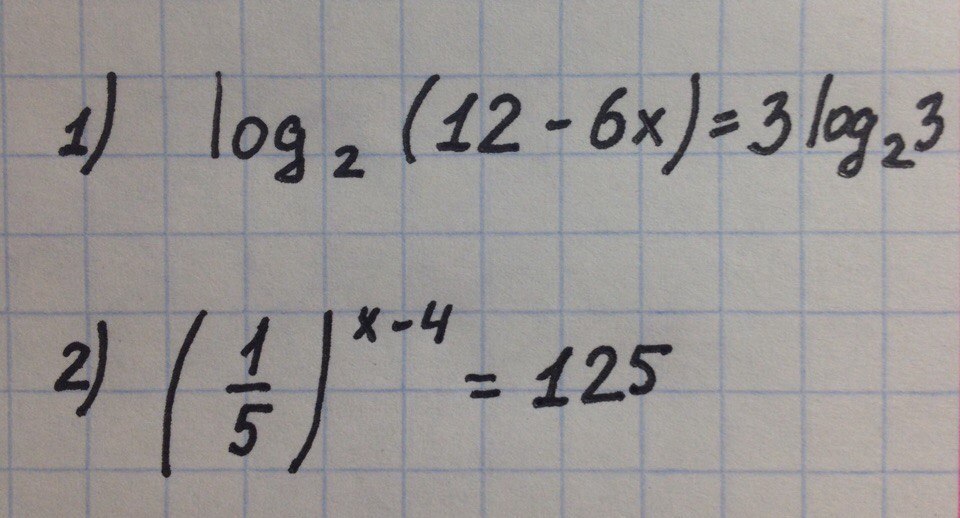 1) log₂ (12 - 6x) = 3 log₂ 3
2) (1/5)^(x-4) = 125